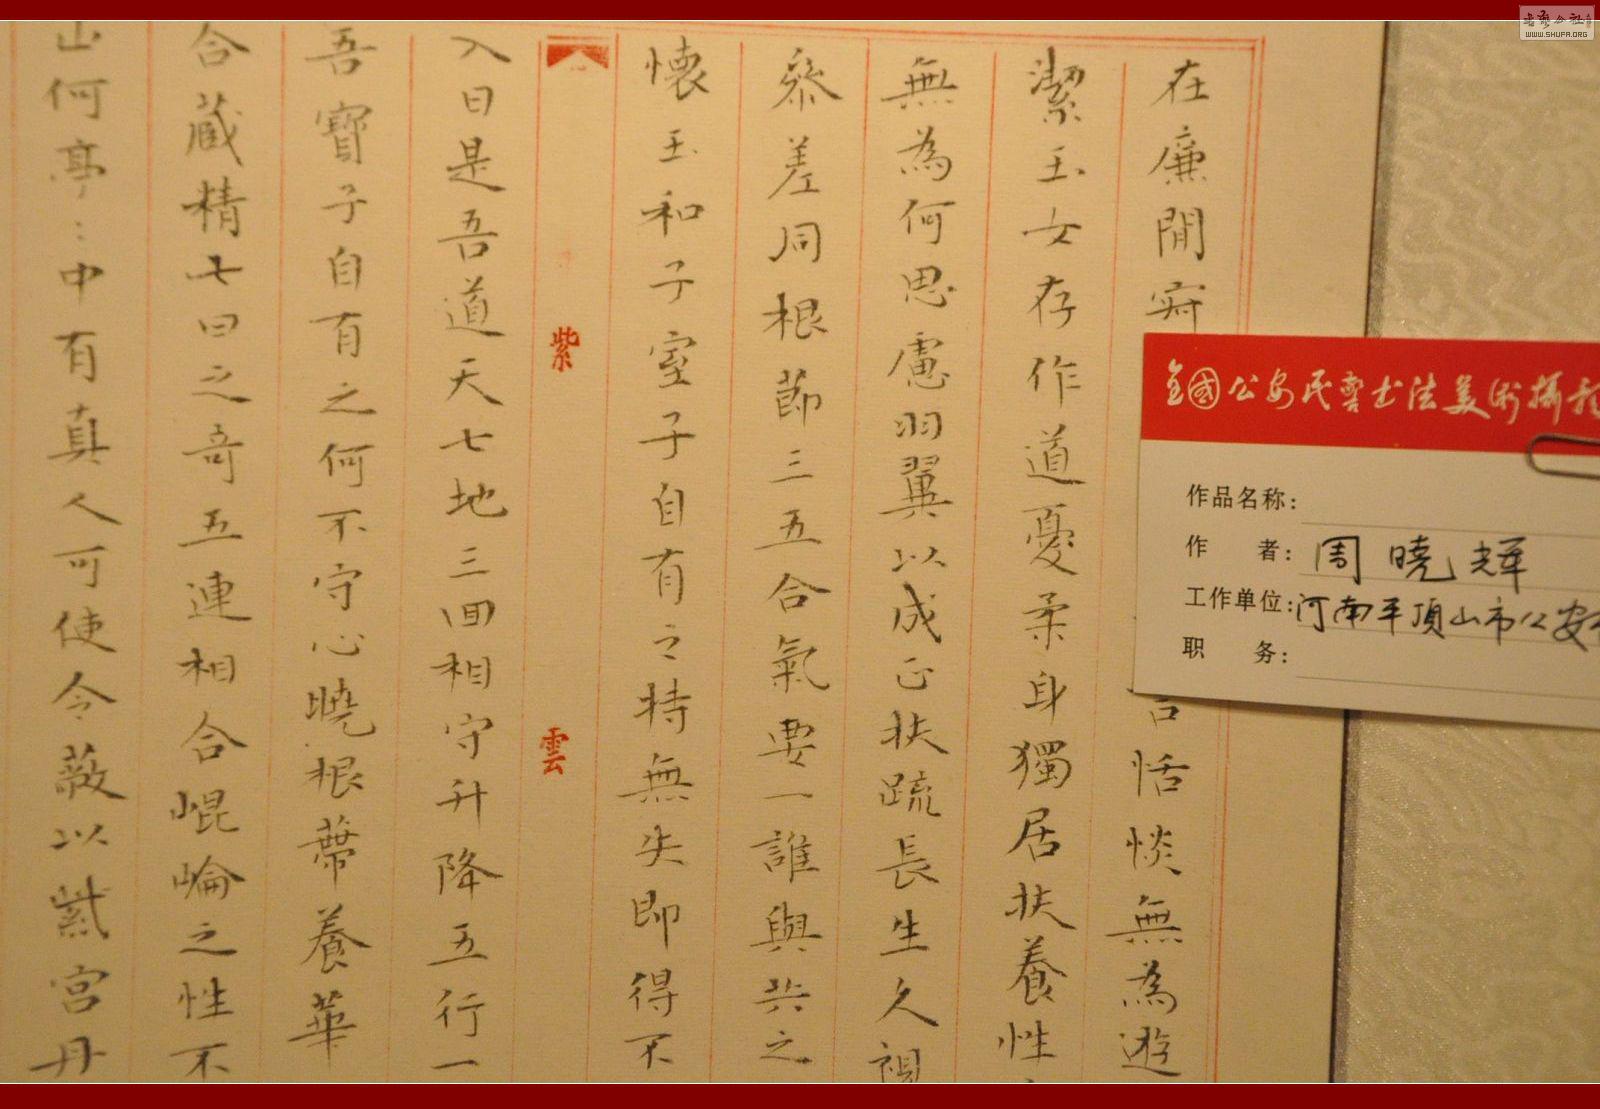 在廉閒寂
言恬惔無為遊
潔玉女存作道憂柔身獨居扶養性
無為何思慮羽翼以成正扶疏長生久視
參差同根節三五合氣要一誰與共之
懷玉和子室子自有之持無失即得不
紫
雲
入日是吾道天七地三回相守升降五行一
吾寶子自有之何不守心曉根蒂養華
合藏精七日之奇五連相合崐崘之性不
山何亭:中有真人可使令蔽以紫宮丹
全國公安民警书法美術攝影
作品名称:
作者:周曉輝
工作单位:河南平顶山市公安
职务:
WWW.SHUFA.ORG